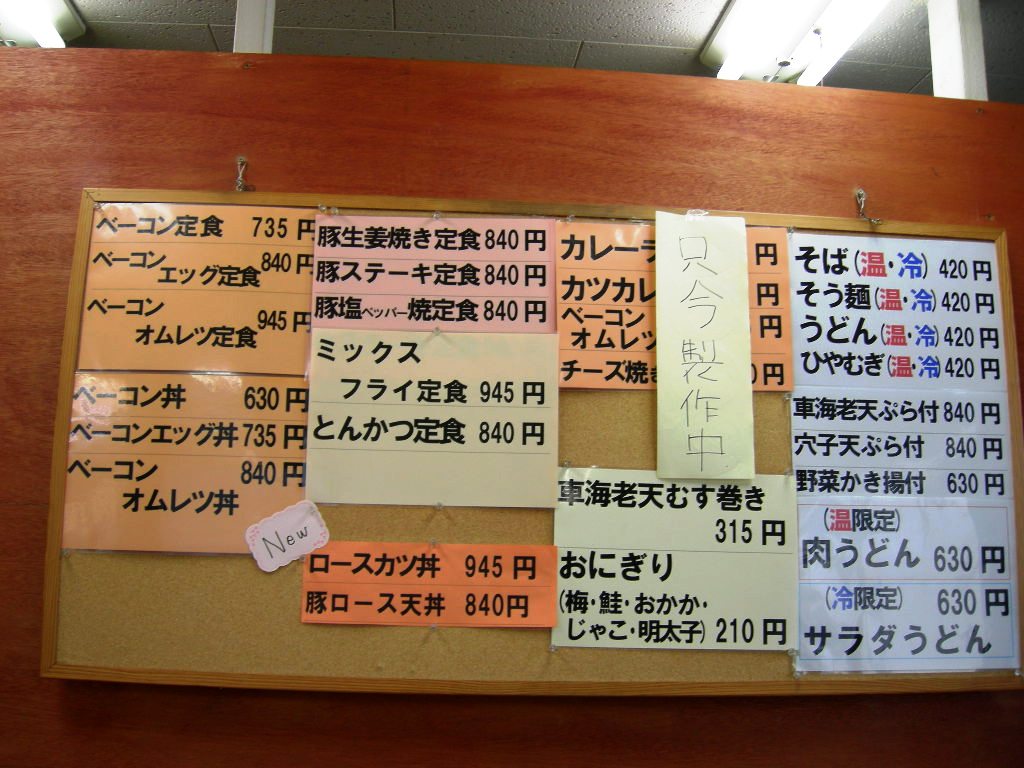 ベーコン定食 735円
ベーコン
エッグ定食 840円
ベーコン
オムレツ定食 945円
ベーコン丼 630円
ベーコンエッグ丼 735円
ベーコン 840円
オムレツ丼
New
豚生姜焼き定食 840円
豚ステーキ定食 840円
豚塩ペッパー焼定食 840円
ミックス
フライ定食 945円
とんかつ定食 840円
ロースカツ丼 945円
豚ロース天丼 840円
カレーラ 円
カツカレ 円
ベーコン
オムレツ 円
チーズ焼き 0円
只今製作中
車海老天むす巻き
315円
おにぎり
(梅・鮭・おかか・
じゃこ・明太子) 210円
そば(温・冷) 420円
そう麺(温・冷) 420円
うどん(温・冷) 420円
ひやむぎ(温・冷) 420円
車海老天ぷら付 840円
穴子天ぷら付 840円
野菜かき揚付 630円
(温限定)
肉うどん 630円
(冷限定) 630円
サラダうどん